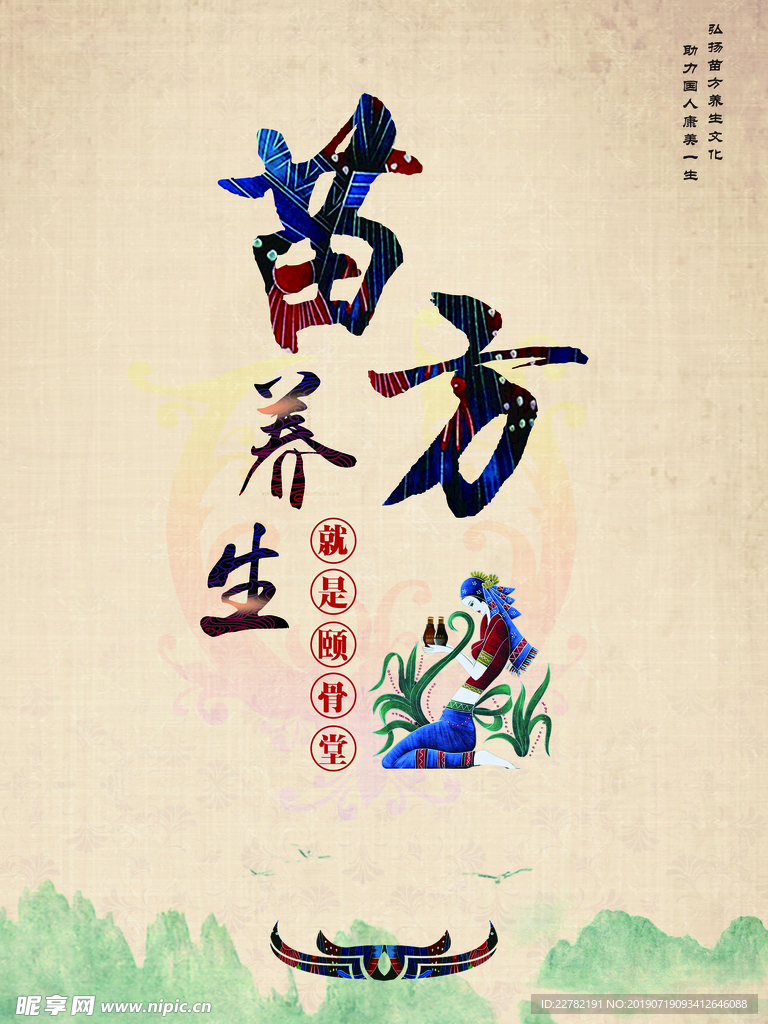 弘扬苗方养生文化
助力国人康美一生
苗方
养生
就是颐骨堂
昵享网 www.nipic.cn
ID:22782191 NO:20190719093412646088